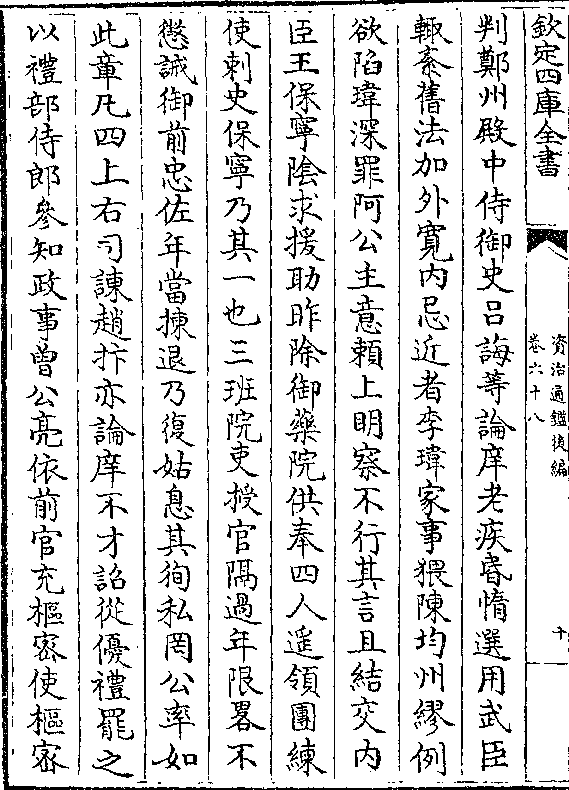 欽定四庫全書
資治通鑑後編
卷六十八
十
判鄭州殿中侍御史吕誨等論庠老疾昏惰選用武臣
輙紊舊法加外寛内忌近者李瑋家事猥陳均州繆例
欲陷瑋深罪阿公主意賴上明察不行其言且結交内
臣王保寧隂求援助昨除御藥院供奉四人遥領團練
使刺史保寧乃其一也三班院吏授官隔過年限畧不
懲誡御前忠佐年當揀退乃復姑息其徇私罔公率如
此章凡四上右司諫趙抃亦論庠不才詔從優禮罷之
以禮部侍郎參知政事曾公亮依前官充樞密使樞密